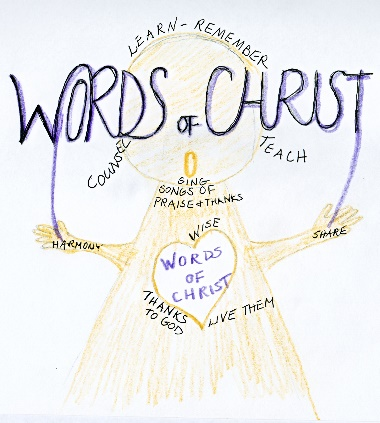 LEARN - REMEMBER
WORDS OF CHRIST
COUNSEL
TEACH
SING
SONGS OF
PRAISE & THANKS
HARMONY
SHARE
WISE
WORDS
OF
CHRIST
THANKS
TO GOD
LIVE THEM